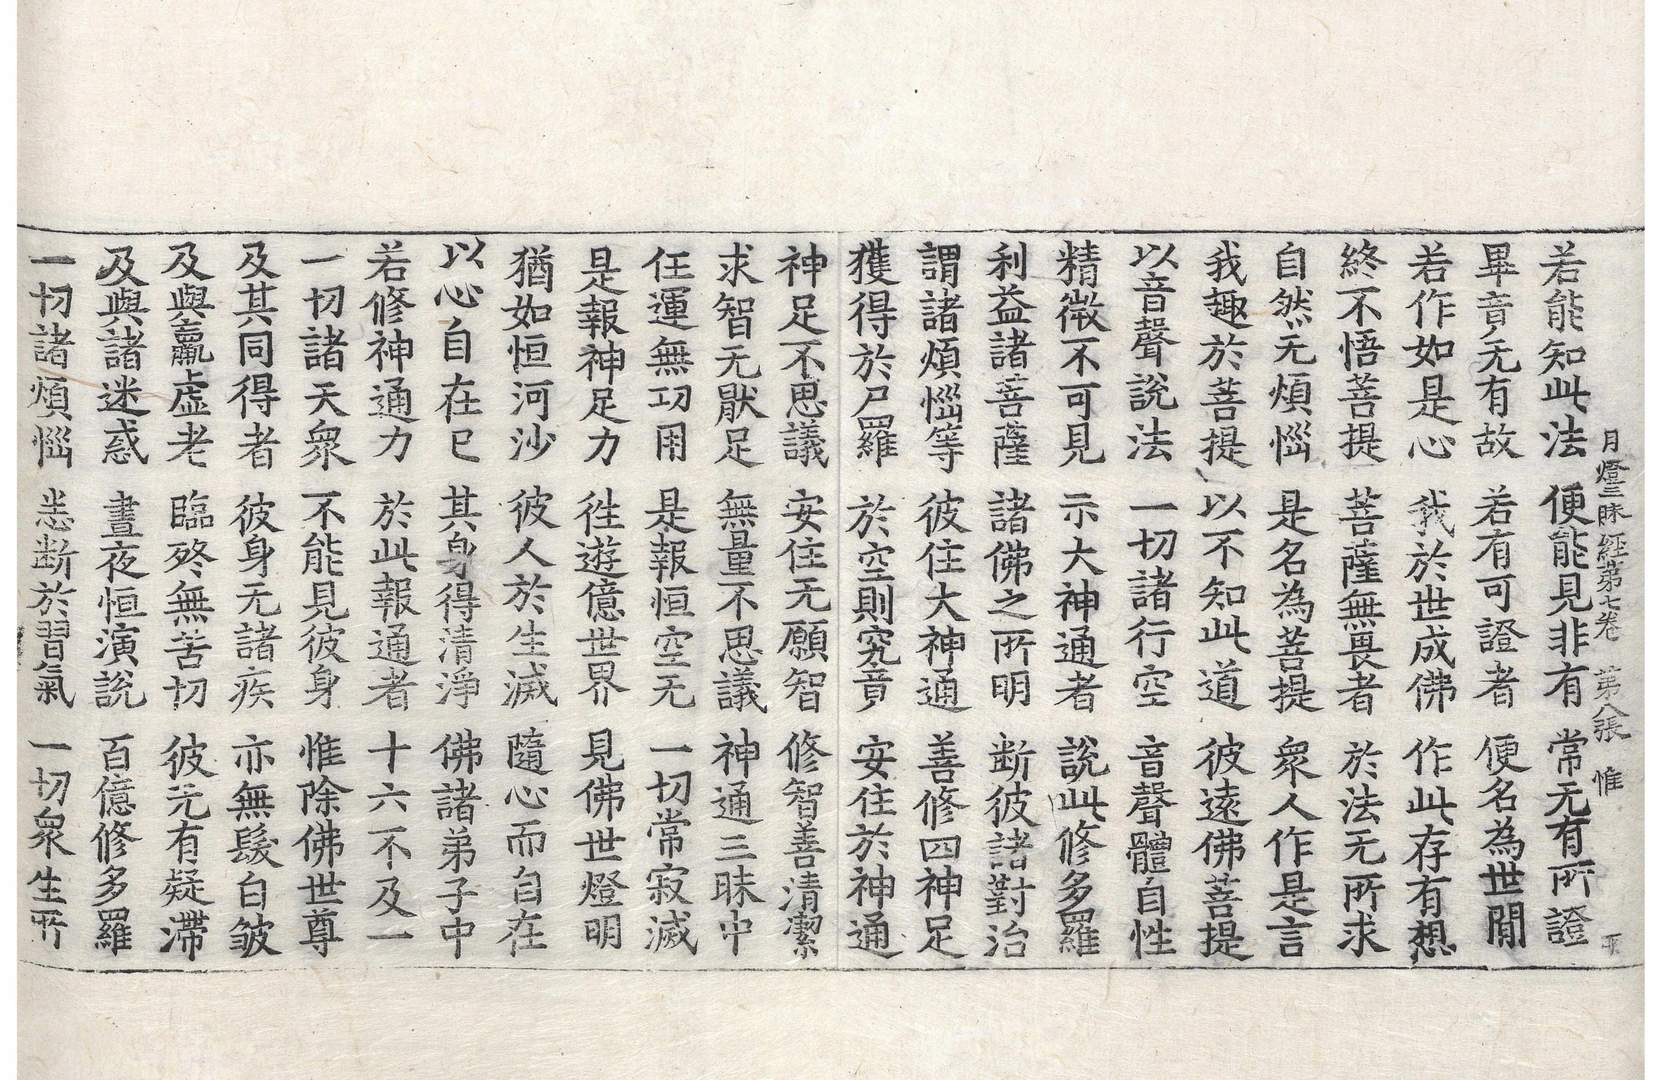 月燈三昧經第七卷 第八張 惟
若能知此法 便能見非有 常无有所證
畢竟无有故 若有可證者 便名為世閒
若作如是心 我於世成佛 作此存有想
終不悟菩提 菩薩無畏者 於法无所求
自然无煩惱 是名為菩提 衆人作是言
我趣於菩提 以不知此道 彼遠佛菩提
以音聲說法 一切諸行空 音聲體自性
精微不可見 示大神通者 說此修多羅
利益諸菩薩 諸佛之所明 断彼諸對治
謂諸煩惱等 彼住大神通 善修四神足
獲得於尸羅 於空則究竟 安住於神通
神足不思議 安住无願智 修智善清潔
求智无猒足 無量不思議 神通三昧中
任運無功用 是報恒空无 一切常寂滅
是報神足力 徃遊億世界 見佛世燈明
猶如恒河沙 彼人於生滅 隨心而自在
以心自在已 其身得清淨 佛諸弟子中
若修神通力 於此報通者 十六不及一
一切諸天衆 不能見彼身 惟除佛世尊
及其同得者 彼身无諸疾 亦無髮白皱
及與羸虛老 臨终無苦切 彼无有疑滯
及與諸迷惑 晝夜恒演說 百億修多羅
一切諸煩惱 悉断於習氣 一切衆生所